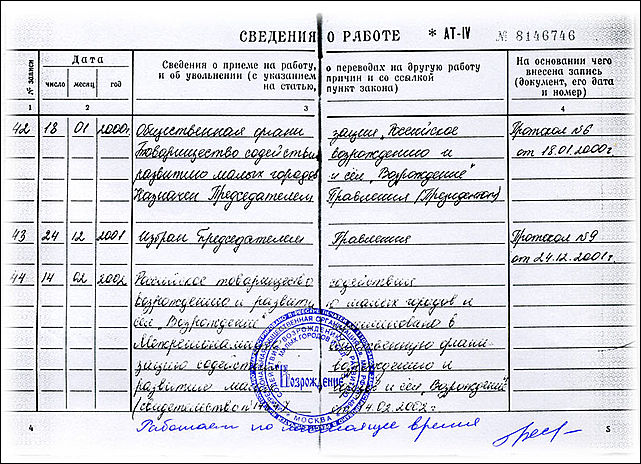 СВЕДЕНИЯ О РАБОТЕ * АТ-IV № 8146746
№ записи
Дата
число месяц год
Сведения о приеме на работу, о переводах на другую работу
и об увольнении (с указанием причин и со ссылкой
на статью, пункт закона)
На основании чего
внесена запись
(документ, его дата
и номер)
1 2 3 4
42 18 01 2000г. Общественная организация „Российское Протокол №6
Товарищество содействия возрождению и от 18.01.2000г.
развитию малых городов и сёл „Возрождение"
Назначен Председателем Правления (Президентом)
43 24 12 2001 Избран Председателем Правления Протокол №9
от 24.12.2001г.
44 14 02 2002 Российское товарищество содействия
возрождению и развитию малых городов и
сёл „Возрождение" в
Межрегиональную общественную органи-
зацию содействия возрождению и
развитию малых городов и сёл „Возрождение"
(свидетельство 14.02.2002г.
Возрождение
МОСКВА
4 5
Работает по настоящее время